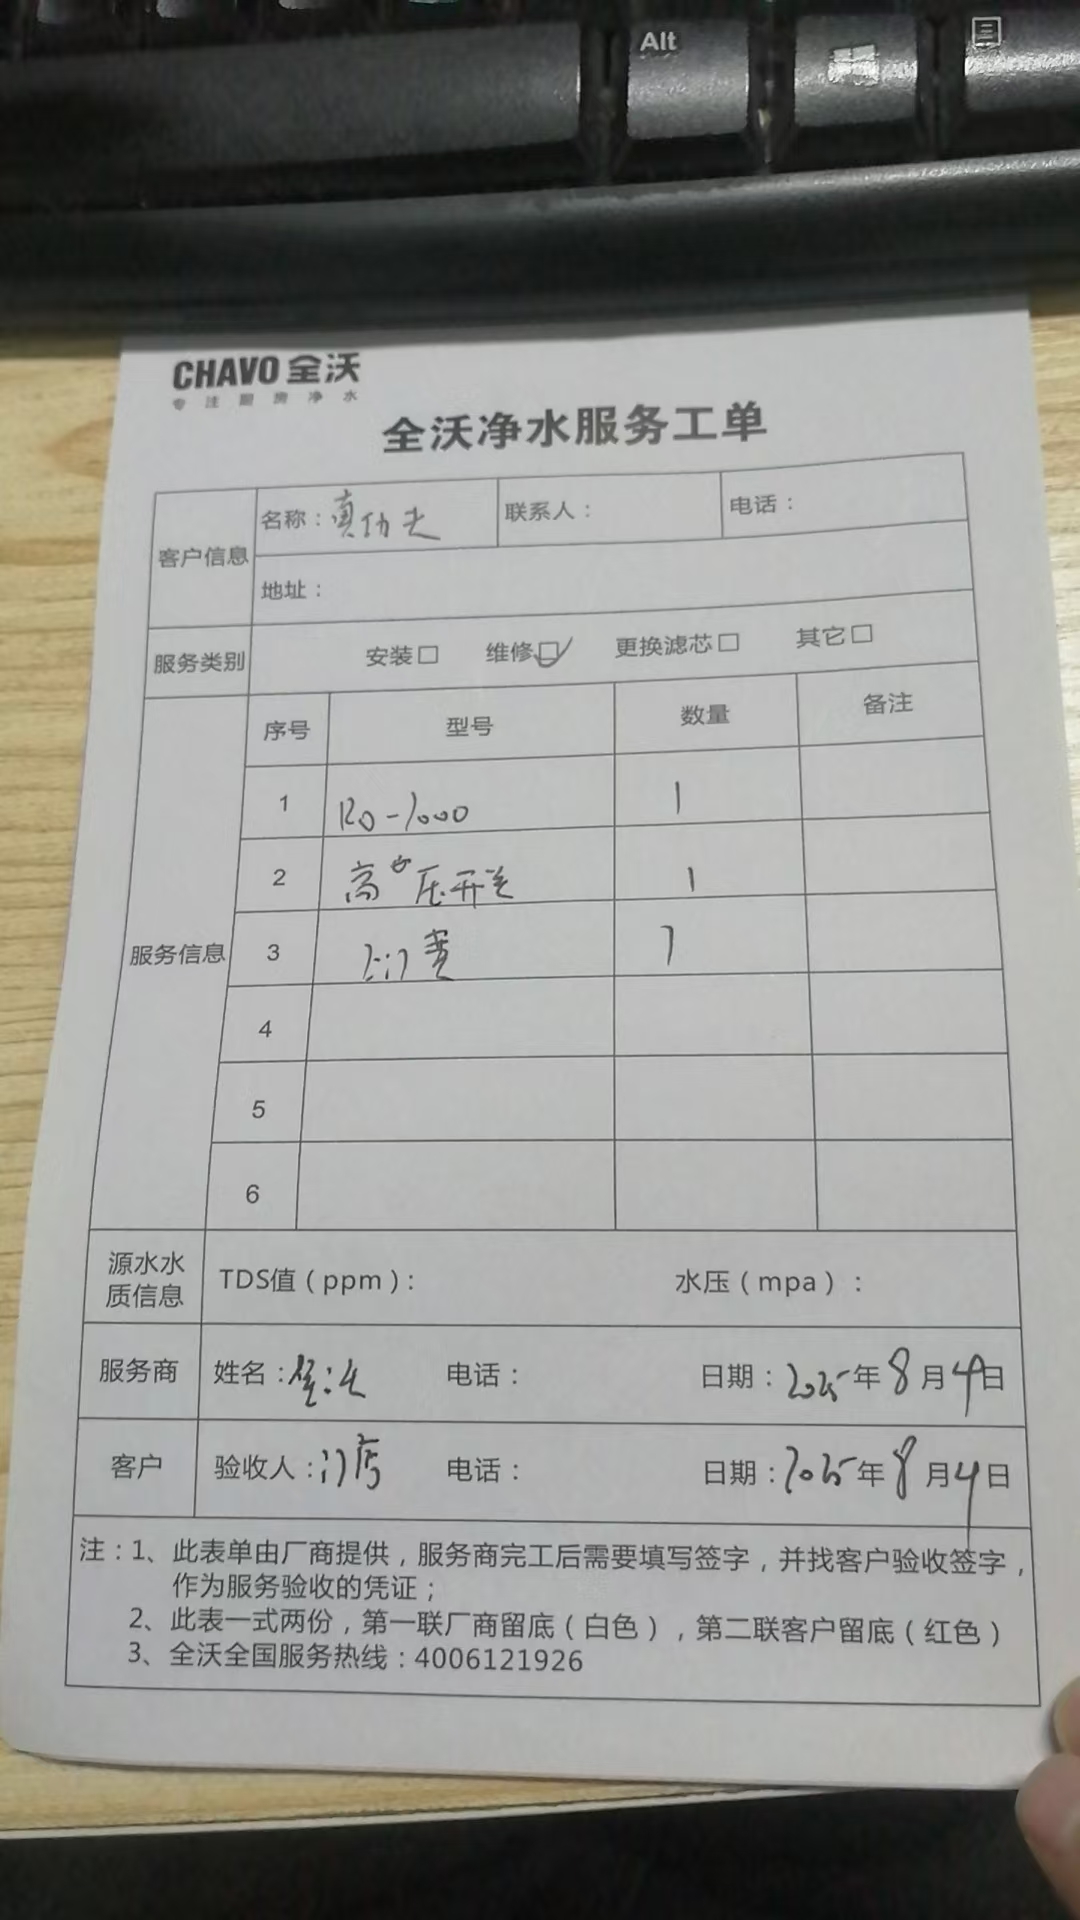 Alt
CHAVO 全沃
专注厨房净水
全沃净水服务工单
客户信息 名称：真功夫 联系人： 电话：
地址：
服务类别 安装□ 维修☑ 更换滤芯□ 其它□
服务信息 序号 型号 数量 备注
1 RO-1000 1
2 高压开关 1
3 上门费 1
4
5
6
源水水质信息 TDS值（ppm）： 水压（mpa）：
服务商 姓名： 电话： 日期：2025年8月4日
客户 验收人：门店 电话： 日期：2025年8月4日
注：1、此表单由厂商提供，服务商完工后需要填写签字，并找客户验收签字，
作为服务验收的凭证；
2、此表一式两份，第一联厂商留底（白色），第二联客户留底（红色）
3、全沃全国服务热线：4006121926